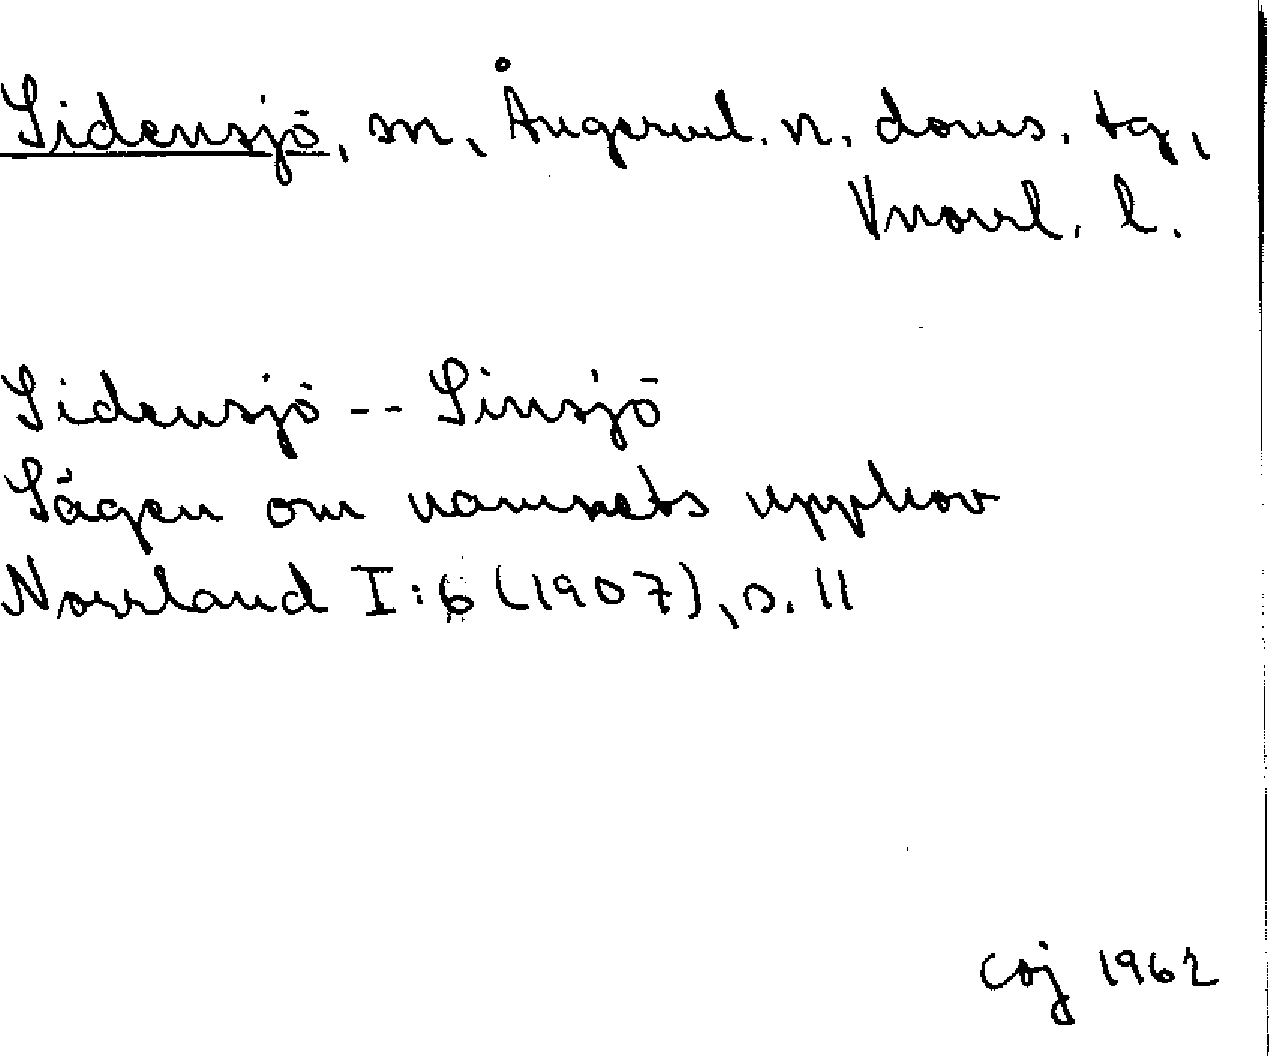 Sidensjö, sn, Ångerml. n. doms. tg,
Vnorrl. l.
Sidensjö -- Sinsjö
Sägen om namnets upphov
Norrland I:6 (1907), s. 11
coj 1962